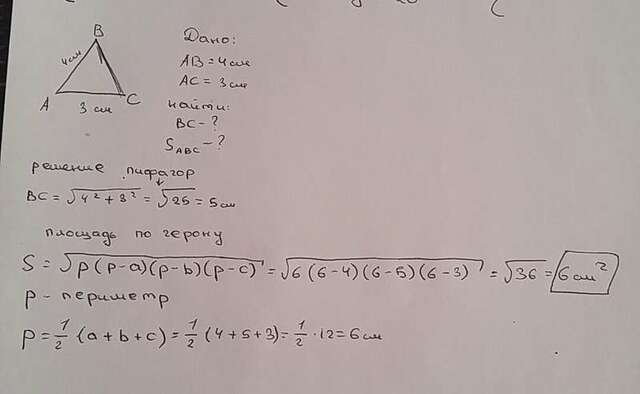 B
4см
A
C
3 см
Дано:
AB = 4см
AC = 3см
найти:
BC - ?
S_ABC - ?
решение пифагор
BC = √4² + 3² = √25 = 5см
площадь по герону
S = √p (p-a)(p-b)(p-c) = √6 (6-4)(6-5)(6-3) = √36 = 6см²
p - периметр
p = 1/2 (a+b+c) = 1/2 (4+5+3) = 1/2 · 12 = 6см